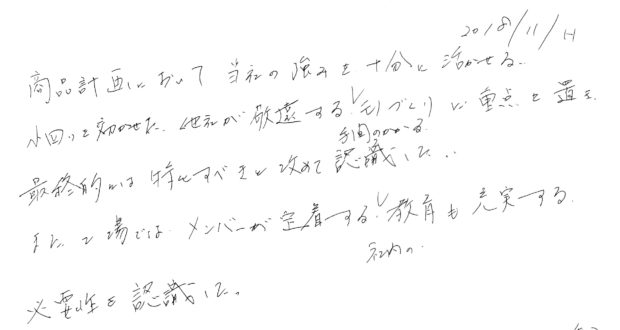 2018/11/11
商品計画において当社の強みを十分に活かせる、
小回りを効かせた、他社が敬遠する✓モノづくりに重点を置き、
手間のかかる
最終的には特化すべきと改めて認識した。
また工場では、メンバーが定着する✓教育も充実する
社内の
必要性を認識した。